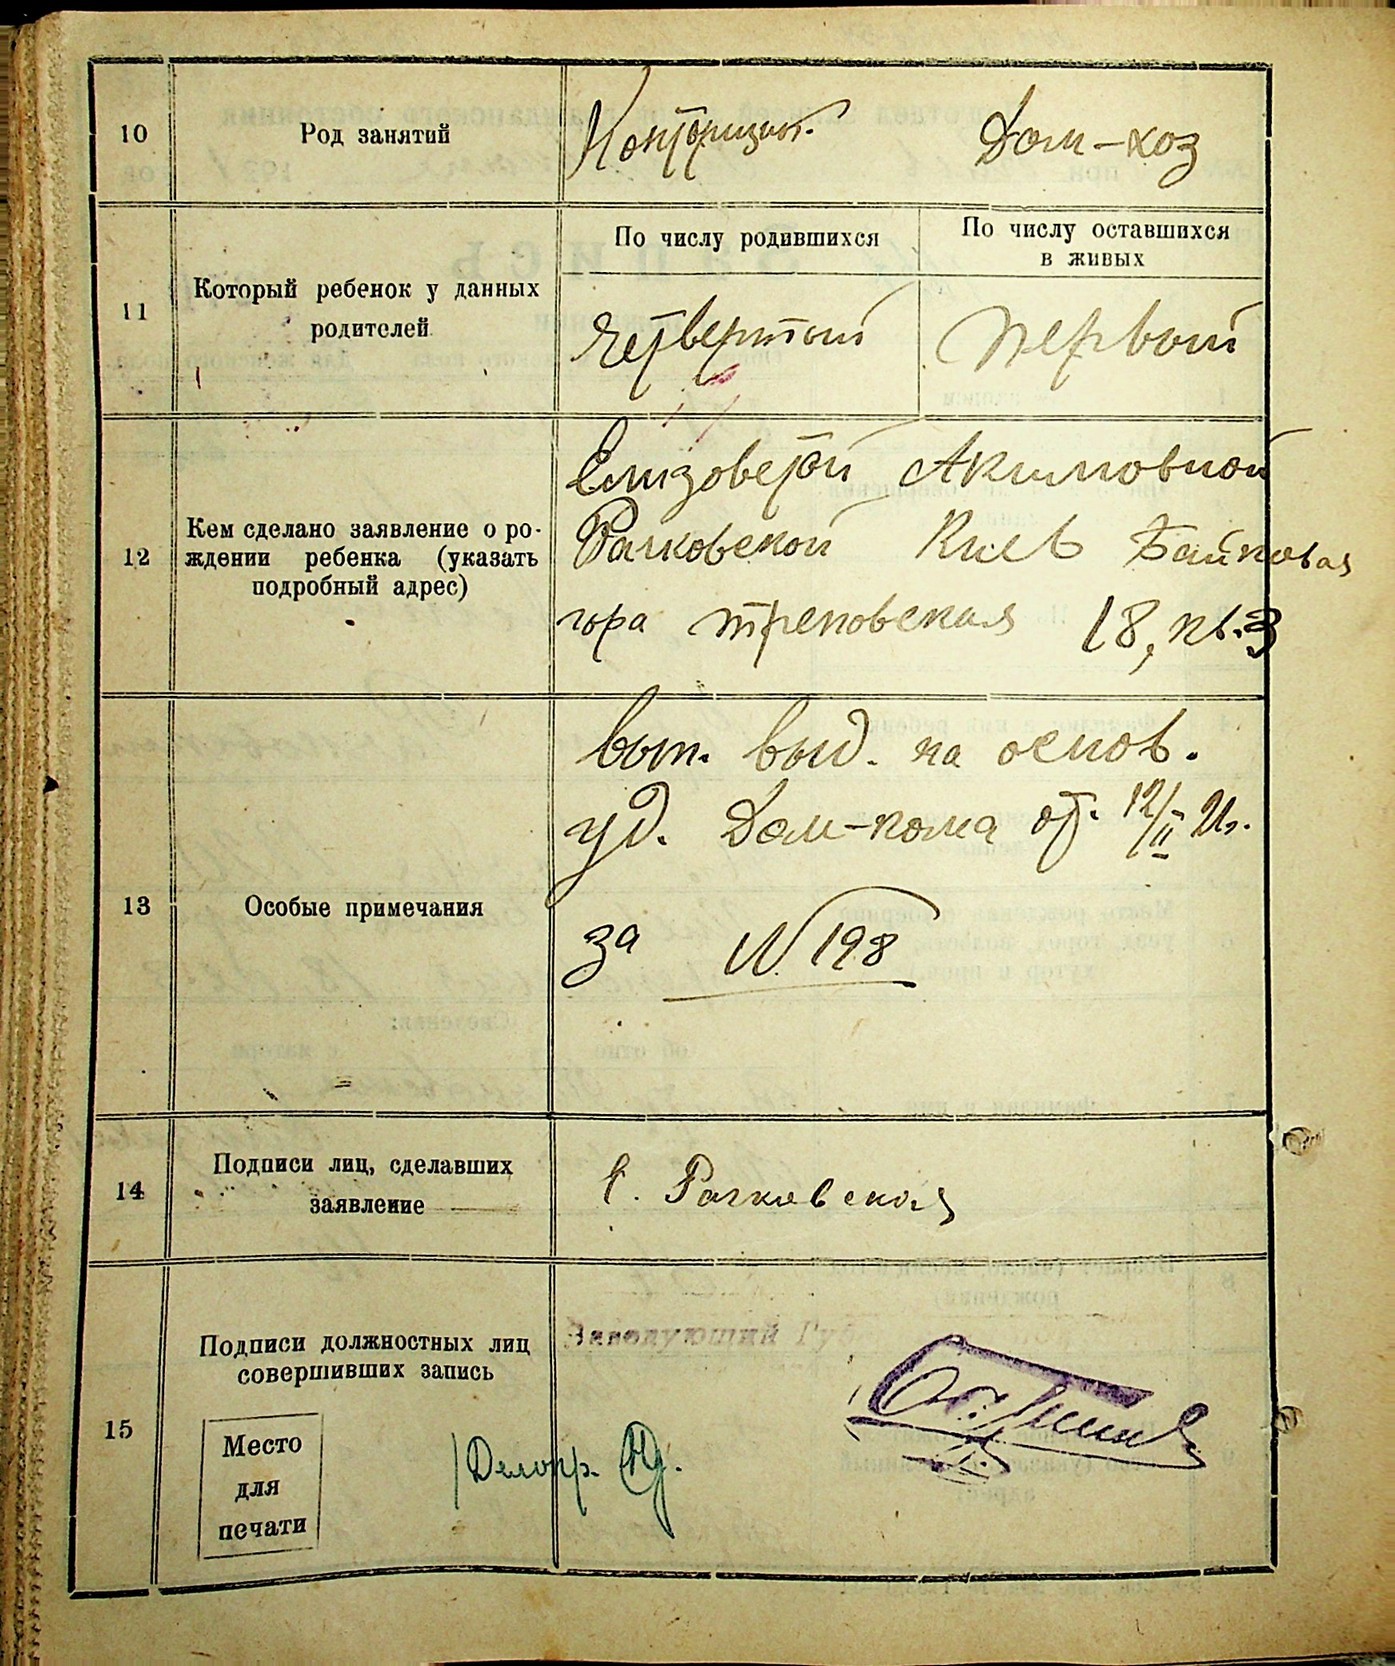 10
Род занятий
Конторщик.
Дом-хоз
11
Который ребенок у данных
родителей
По числу родившихся
Четвертый
По числу оставшихся
в живых
Первый
12
Кем сделано заявление о ро-
ждении ребенка (указать
подробный адрес)
Елизоветой Акимовной
Рачковской Киев Байковая
гора треповская 18, кв. 3
13
Особые примечания
вып. выд. на основ.
уд. Дом-кома от. 12/II 21г.
за N. 198
14
Подписи лиц, сделавших
заявление
Е. Рачковская
15
Подписи должностных лиц
совершивших запись
Место
для
печати
Заведующий Губ
Делопр.